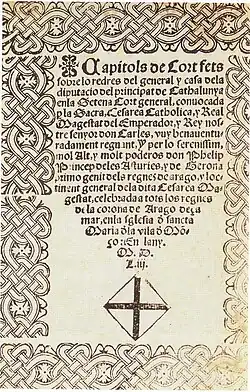 Capitols de Cort fets
sobre lo redres del general y casa dela
diputacio del principat de Cathalunya
en la Setena Cort general, conuocada
p la Sacra, Cesarea Catholica, y Real
Magestat del Emperador, y Rey nos-
tre senyor don Carles, vuy benauentu-
radament regnant. Y per lo serenissim,
mol Alt, y molt poderos don Phelip
Princep deles Asturies, y de Gerona
primogenit dels regnes de arago, y loc-
tinent general dela dita Cesarea Ma-
gestat, celebrada a tots los regnes
de la corona de Arago dela
mar, en la sglesia d sancta
Maria d la vila d Mõ-
ço: En lany.
M. D.
Liij.